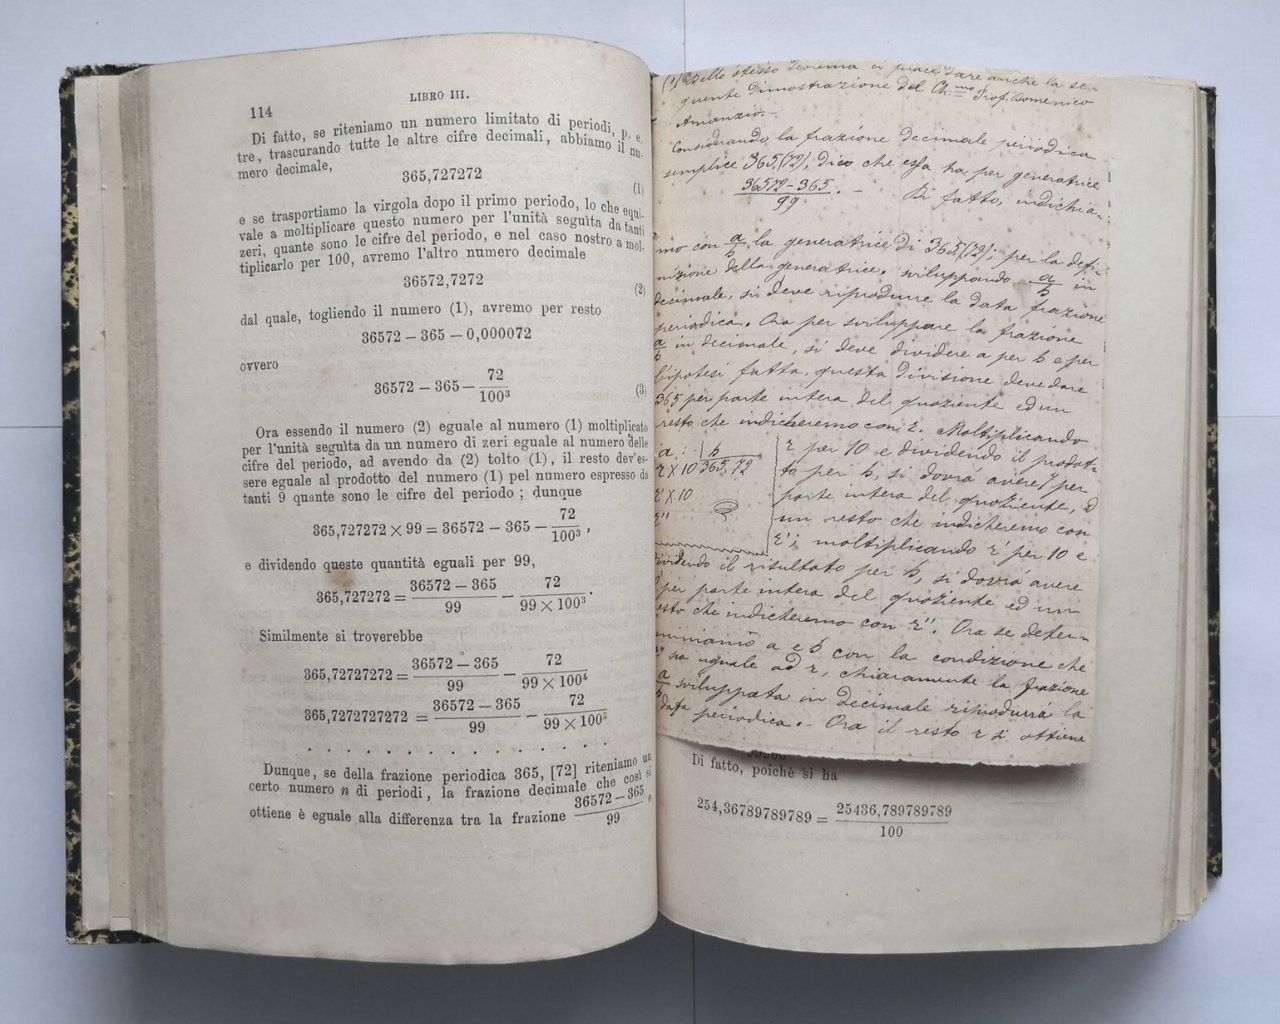 114
LIBRO III.
Di fatto, se riteniamo un numero limitato di periodi, p. e.
tre, trascurando tutte le altre cifre decimali, abbiamo il nu-
mero decimale,
365,727272
(1)
e se trasportiamo la virgola dopo il primo periodo, lo che equi-
vale a moltiplicare questo numero per l'unità seguìta da tanti
zeri, quante sono le cifre del periodo, e nel caso nostro a mol-
tiplicarlo per 100, avremo l'altro numero decimale
36572,7272
(2)
dal quale, togliendo il numero (1), avremo per resto
36572 – 365 – 0,000072
ovvero
36572 – 365 – 72/100³ (3)
Ora essendo il numero (2) eguale al numero (1) moltiplicato
per l'unità seguìta da un numero di zeri eguale al numero delle
cifre del periodo, ad avendo da (2) tolto (1), il resto dev'es-
sere eguale al prodotto del numero (1) pel numero espresso da
tanti 9 quante sono le cifre del periodo ; dunque
365,727272 × 99 = 36572 – 365 – 72/100³ ,
e dividendo queste quantità eguali per 99,
365,727272 = 36572 – 365/99 – 72/99 × 100³ .
Similmente si troverebbe
365,72727272 = 36572 – 365/99 – 72/99 × 100⁴
365,7272727272 = 36572 – 365/99 – 72/99 × 100⁵
. . . . . . . . . . . . . . . .
Dunque, se della frazione periodica 365, [72] riteniamo un
certo numero n di periodi, la frazione decimale che così si
ottiene è eguale alla differenza tra la frazione 36572 – 365/99 ,
(1) Dello stesso teorema ci piace dare anche la se-
quente dimostrazione del Ch.mo Prof. Domenico
Amanzio.–
Considerando la frazione decimale periodica
semplice 365,(72), dico che essa ha per generatrice
36572–365/99 . – Di fatto, indichia-
mo con a/b la generatrice di 365,(72); per la defi-
nizione della generatrice, sviluppando a/b in
decimale, si deve riprodurre la data frazione
periodica. Ora per sviluppare la frazione
a/b in decimale, si deve dividere a per b e per
l'ipotesi fatta, questa divisione deve dare
365 per parte intera del quoziente ed un
resto che indicheremo con r. Moltiplicando
a : b
r × 10 365,72
r' × 10
r''
r per 10 e dividendo il prodot-
to per b, si dovrà avere 7 per
parte intera del quoziente, ed
un resto che indicheremo con
r'; moltiplicando r' per 10 e
dividendo il risultato per b, si dovrà avere
2 per parte intera del quoziente ed un
resto che indicheremo con r''. Ora se deter-
miniamo a e b con la condizione che
r'' sia uguale ad r, chiaramente la frazione
a/b sviluppata in decimale riprodurrà la
data periodica.– Ora il resto r si ottiene
Di fatto, poichè si ha
254,36789789789 = 25436,789789789/100